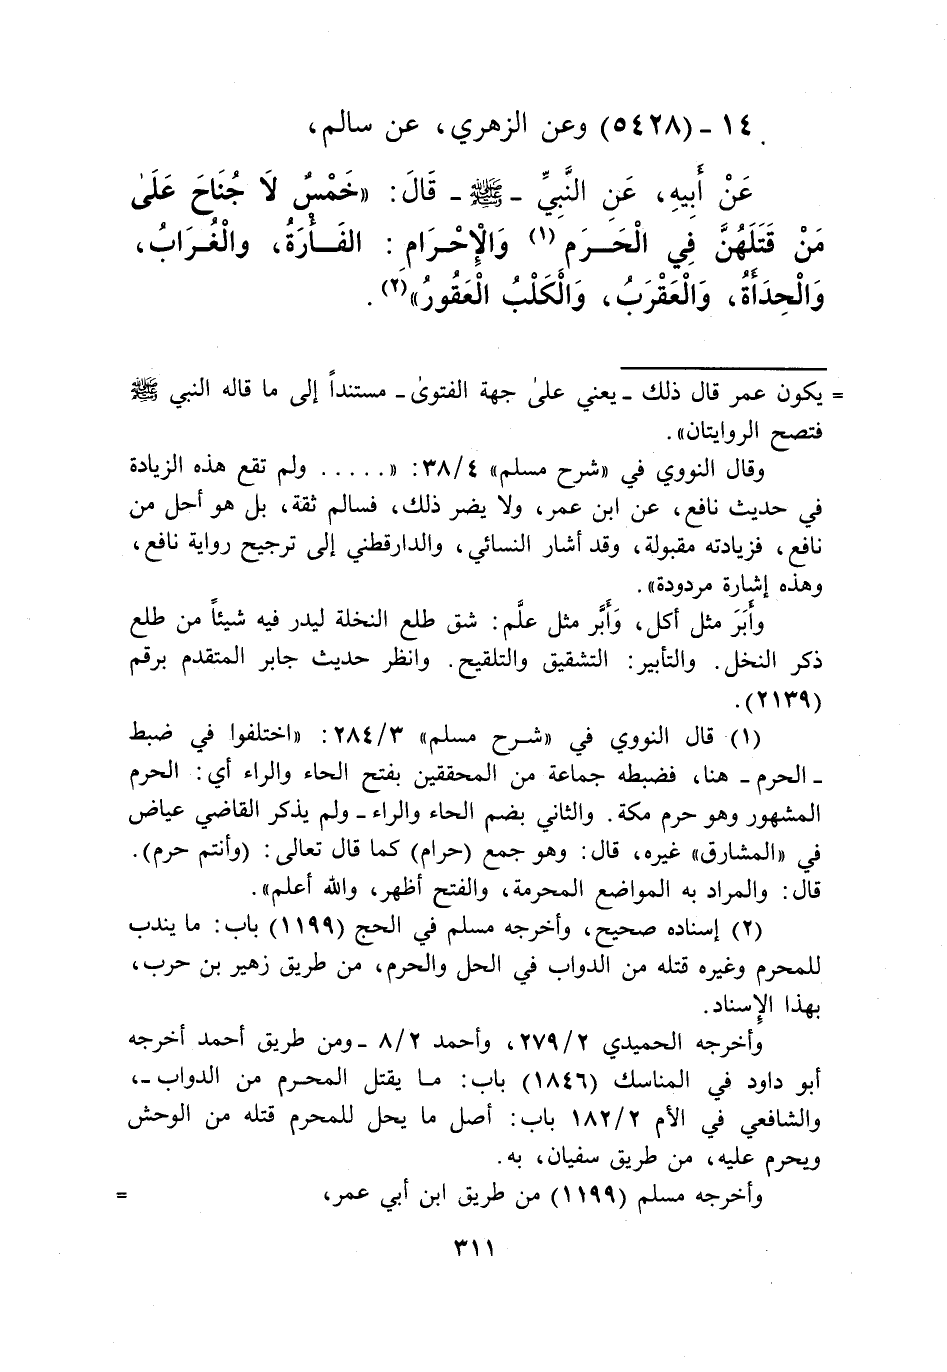 ١٤ ـ (٥٤٢٨) وعن الزهري، عن سالم،
عَنْ أَبِيهِ، عَنِ النَّبِيِّ ـ ﷺ ـ قَالَ: «خَمْسٌ لَا جُنَاحَ عَلَىٰ
مَنْ قَتَلَهُنَّ فِي الْحَـرَمِ (١) وَالْإِحْرَامِ: الفَـأْرَةُ، والْغُـرَابُ،
وَالْحِدَأَةُ، وَالْعَقْرَبُ، وَالْكَلْبُ الْعَقُورُ»(٢).
= يكون عمر قال ذلك ـ يعني علىٰ جهة الفتوىٰ ـ مستنداً إلى ما قاله النبي ﷺ
فتصح الروايتان».
وقال النووي في «شرح مسلم» ٣٨/٤: «..... ولم تقع هذه الزيادة
في حديث نافع، عن ابن عمر، ولا يضر ذلك، فسالم ثقة، بل هو أحل من
نافع، فزيادته مقبولة، وقد أشار النسائي، والدارقطني إلى ترجيح رواية نافع،
وهذه إشارة مردودة».
وأَبَرَ مثل أكل، وَأَبَّر مثل علَّم: شق طلع النخلة ليدر فيه شيئاً من طلع
ذكر النخل. والتأبير: التشقيق والتلقيح. وانظر حديث جابر المتقدم برقم
(٢١٣٩).
(١) قال النووي في «شـرح مسلم» ٢٨٤/٣: «اختلفوا في ضبط
ـ الحرم ـ هنا، فضبطه جماعة من المحققين بفتح الحاء والراء أي: الحرم
المشهور وهو حرم مكة. والثاني بضم الحاء والراء ـ ولم يذكر القاضي عياض
في «المشارق» غيره، قال: وهو جمع (حرام) كما قال تعالى: (وأنتم حرم).
قال: والمراد به المواضع المحرمة، والفتح أظهر، والله أعلم».
(٢) إسناده صحيح، وأخرجه مسلم في الحج (١١٩٩) باب: ما يندب
للمحرم وغيره قتله من الدواب في الحل والحرم، من طريق زهير بن حرب،
بهذا الإسناد.
وأخرجه الحميدي ٢٧٩/٢، وأحمد ٨/٢ ـ ومن طريق أحمد أخرجه
أبو داود في المناسك (١٨٤٦) باب: مـا يقتل المحـرم من الدواب ـ،
والشافعي في الأم ١٨٢/٢ باب: أصل ما يحل للمحرم قتله من الوحش
ويحرم عليه، من طريق سفيان، به.
وأخرجه مسلم (١١٩٩) من طريق ابن أبي عمر، =
٣١١